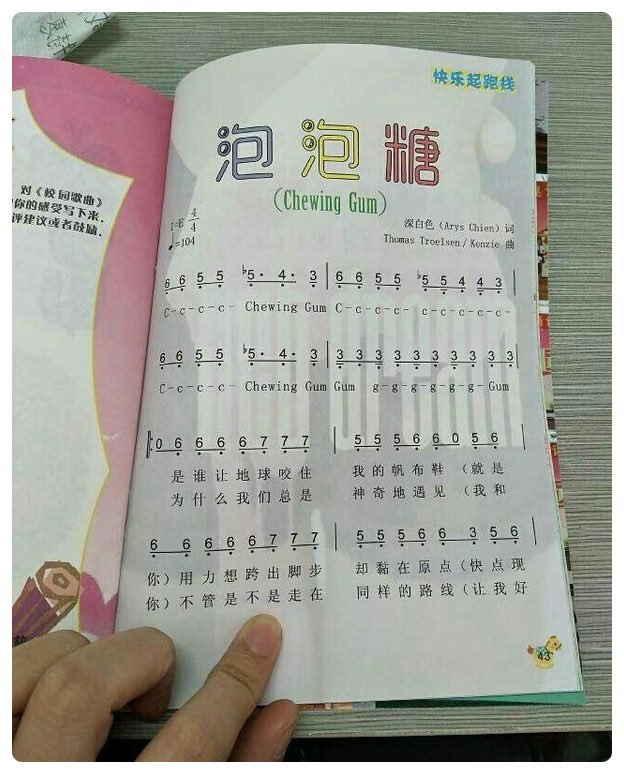 对《校园歌曲》
你的感受写下来,
评建议或者鼓励,
快乐起跑线
泡泡糖
(Chewing Gum)
1=E 4/4
♩=104
深白色 (Arys Chien) 词
Thomas Troelsen / Kenzie 曲
6 6 5 5 ♭5· 4· 3 | 6 6 5 5 ♭5 5 4 4 3 |
C-c-c-c- Chewing Gum C-c-c-c- c-c-c-c-c-
6 6 5 5 ♭5· 4· 3 | 3 3 3 3 3 3 3 3 3 3 |
C-c-c-c- Chewing Gum Gum g-g-g-g-g-g-Gum
‖: 0 6 6 6 6 7 7 7 | 5 5 5 6 6 0 5 6 |
是谁让地球咬住 我的帆布鞋 (就是
为什么我们总是 神奇地遇见 (我和
6 6 6 6 6 7 7 7 | 5 5 5 6 6 3 5 6 |
你) 用力想跨出脚步 却黏在原点 (快点现
你) 不管是不是走在 同样的路线 (让我好
43